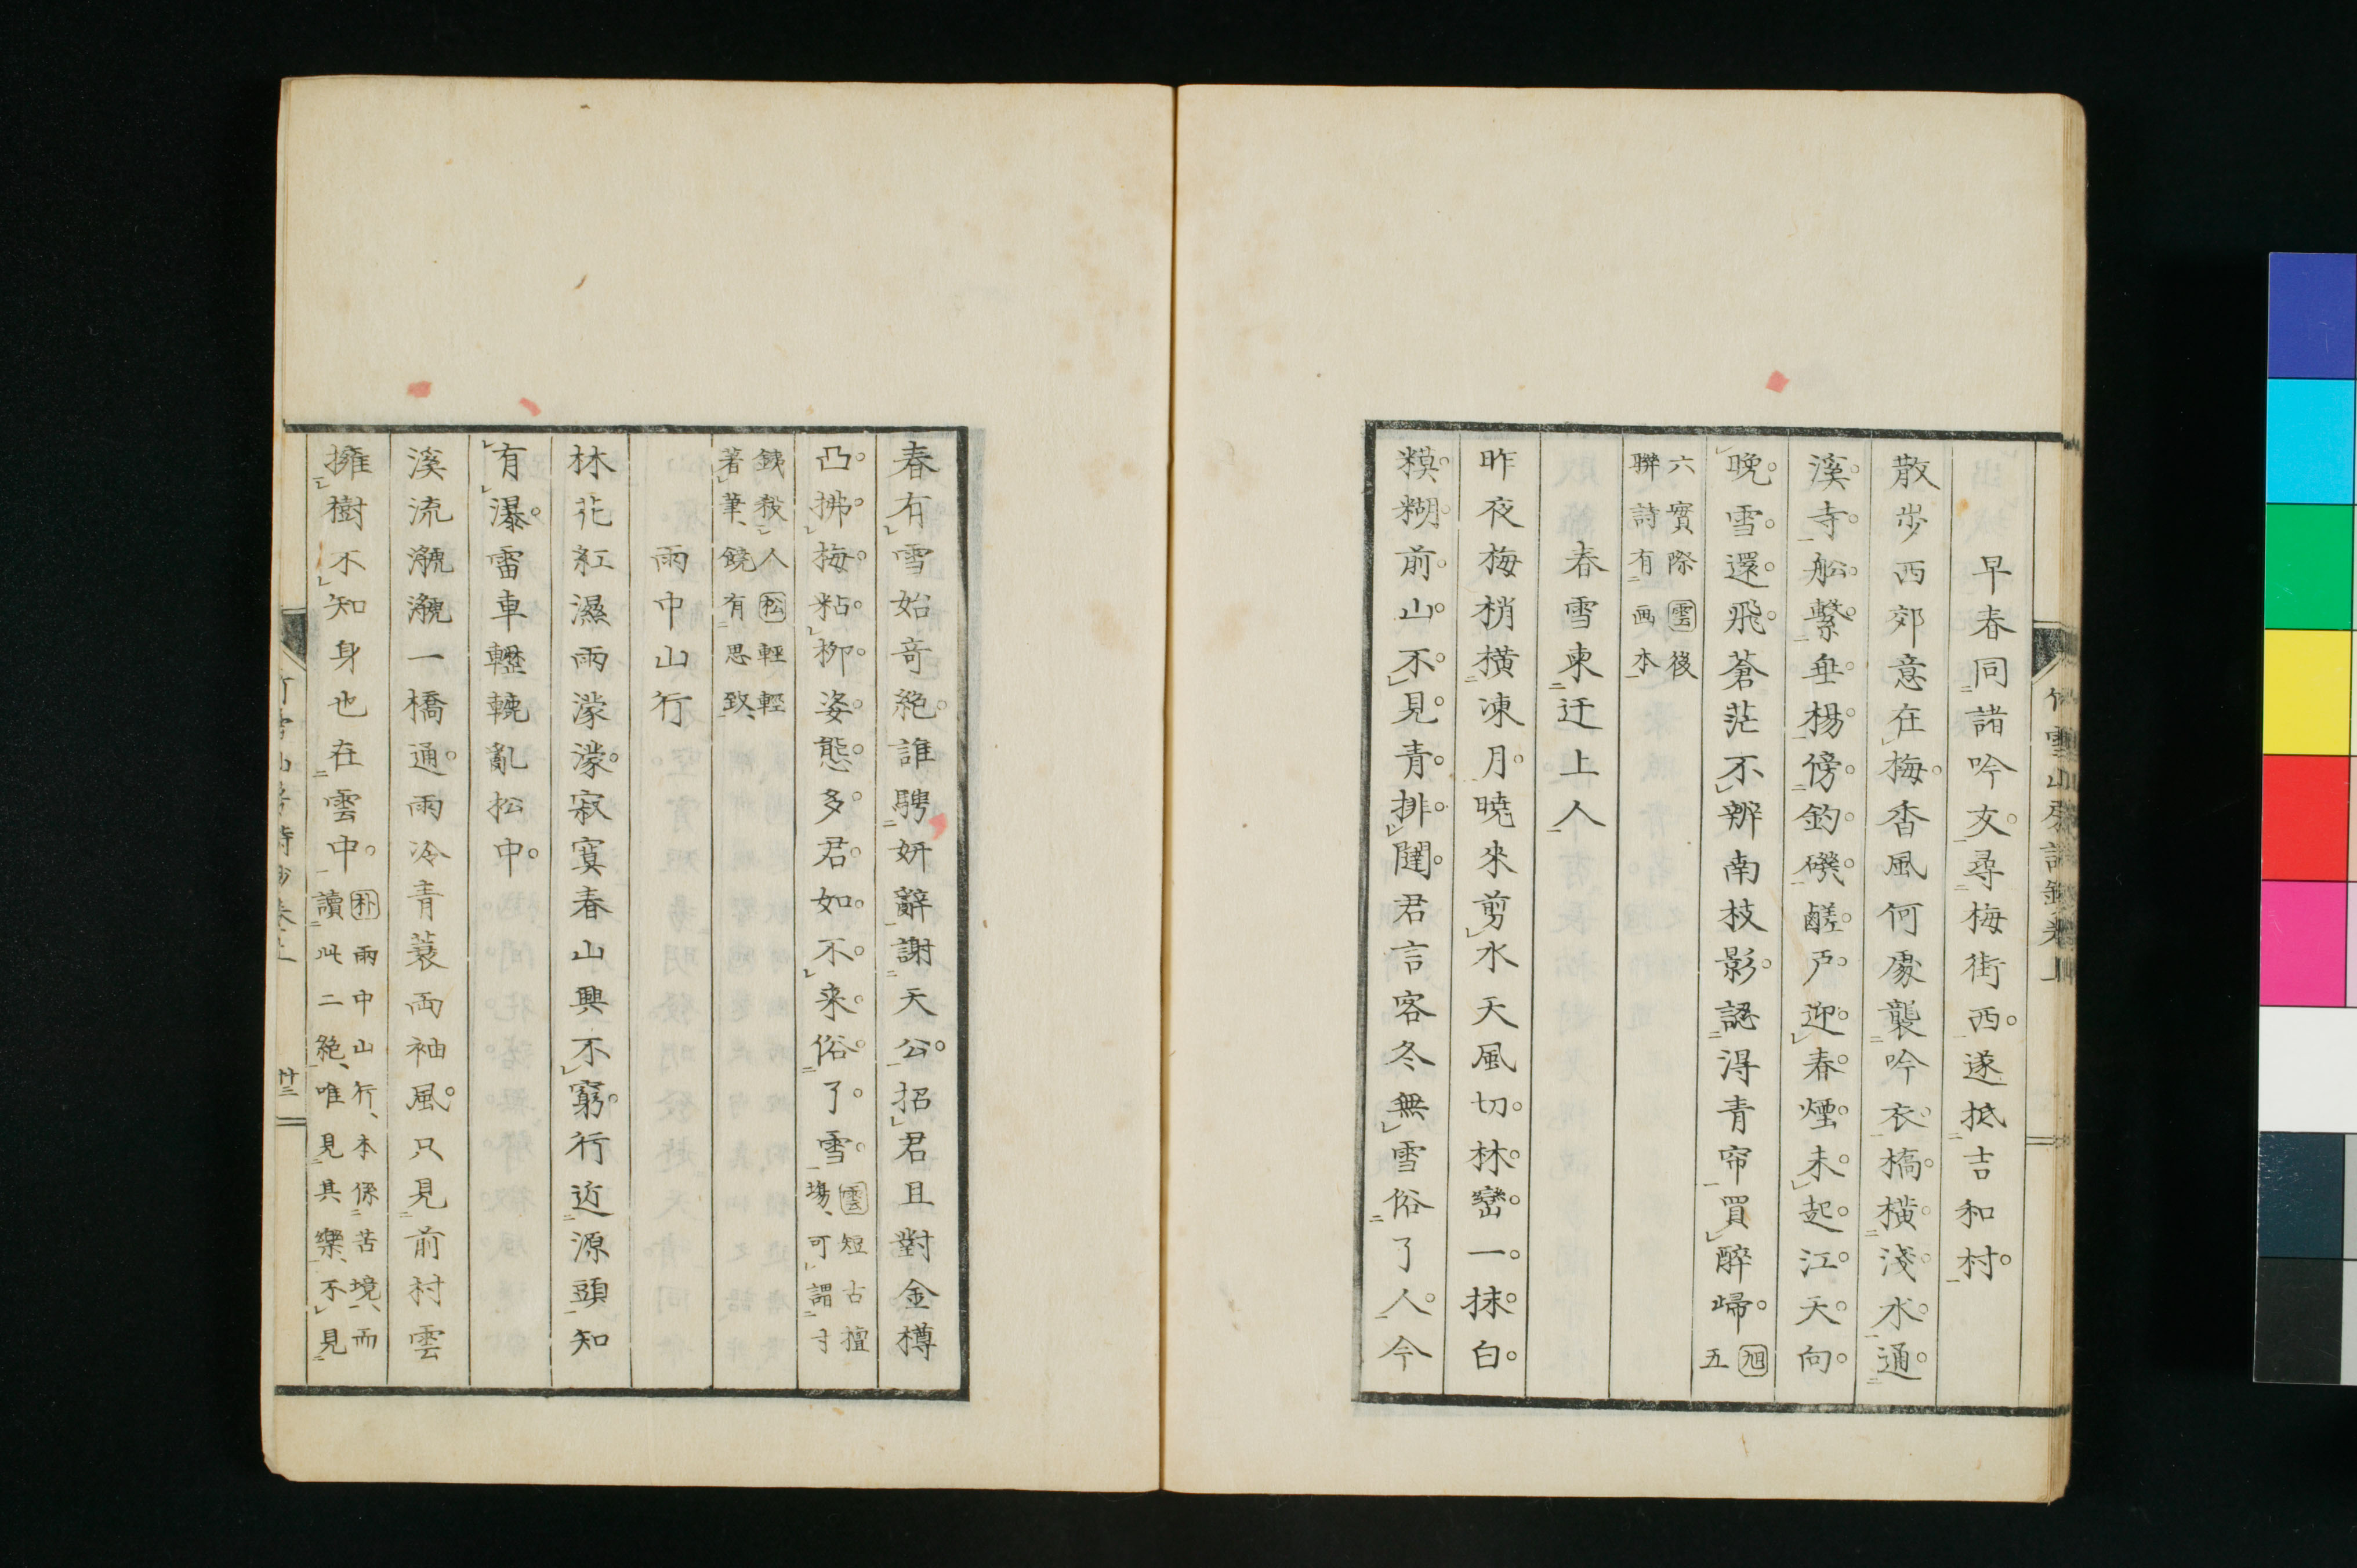 早春同諸吟友尋梅街西遂抵吉和村
散步西郊意在梅香風何處襲吟衣橋橫淺水通
溪寺舩繫垂楊傍釣磯鹺戸迎春煙未起江天向
晩雪還飛蒼茫不辨南枝影認得青帘買醉歸旭五
六實際雲後
聯詩有画本
春雪柬迂上人
昨夜梅梢橫凍月曉來剪水天風切林巒一抹白
糢糊前山不見青排闥君言客冬無雪俗了人今
春有雪始奇絕誰騁妍辭謝天公招君且對金樽
凸拂梅粘柳姿態多君如不來俗了雪雲短古擅場可謂寸
鉄殺人松輕輕
著筆饒有思致
雨中山行
林花紅濕雨濛濛寂寞春山興不窮行近源頭知
有瀑雷車轣轆亂松中
溪流㶁㶁一橋通雨冷青蓑両袖風只見前村雲
擁樹不知身也在雲中朴雨中山行本係苦境而
讀此二絕唯見其樂不見